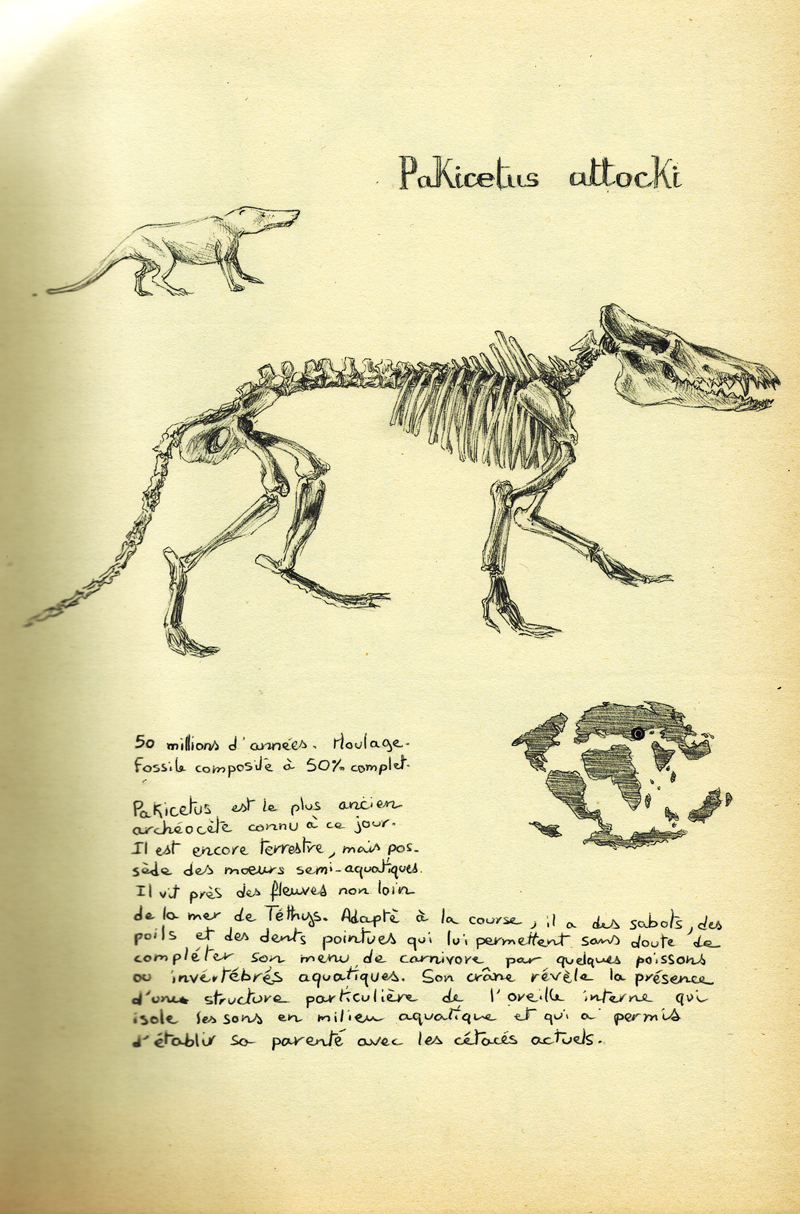 Pakicetus attocki
50 millions d'années. Moulage.
Fossile composite à 50% complet.
Pakicetus est le plus ancien
archéocète connu à ce jour.
Il est encore terrestre, mais pos-
sède des moeurs semi-aquatiques.
Il vit près des fleuves non loin
de la mer de Téthys. Adapté à la course, il a des sabots, des
poils et des dents pointues qui lui permettent sans doute de
compléter son menu de carnivore par quelques poissons
ou invertébrés aquatiques. Son crâne révèle la présence
d'une structure particulière de l'oreille interne qui
isole les sons en milieu aquatique et qui a permis
d'établir sa parenté avec les cétacés actuels.